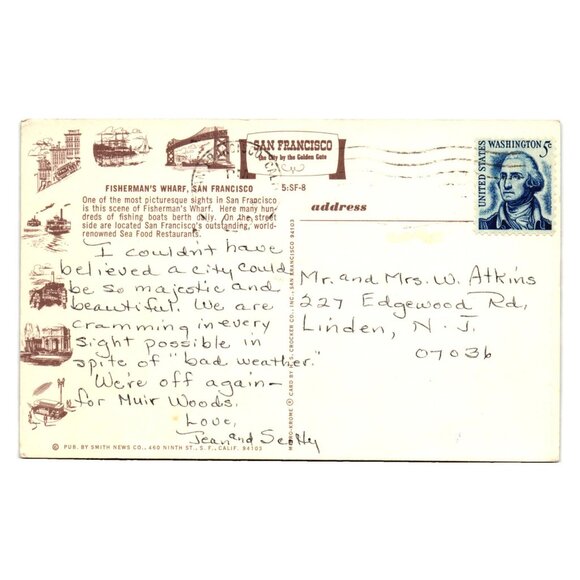 SAN FRANCISCO
the City by the Golden Gate
FISHERMAN'S WHARF, SAN FRANCISCO 5:SF-8
One of the most picturesque sights in San Francisco
is this scene of Fisherman's Wharf. Here many hun-
dreds of fishing boats berth daily. On the street
side are located San Francisco's outstanding, world-
renowned Sea Food Restaurants.
I couldn't have
believed a city could
be so majestic and
beautiful. We are
cramming in every
sight possible in
spite of "bad weather."
We're off again—
for Muir Woods.
Love,
Jean and Scotty
© PUB. BY SMITH NEWS CO., 460 NINTH ST., S. F., CALIF. 94103
CARD BY H. S. CROCKER CO., INC., SAN FRANCISCO 94103
address
UNITED STATES
WASHINGTON 5c
Mr. and Mrs. W. Atkins
227 Edgewood Rd,
Linden, N. J.
07036